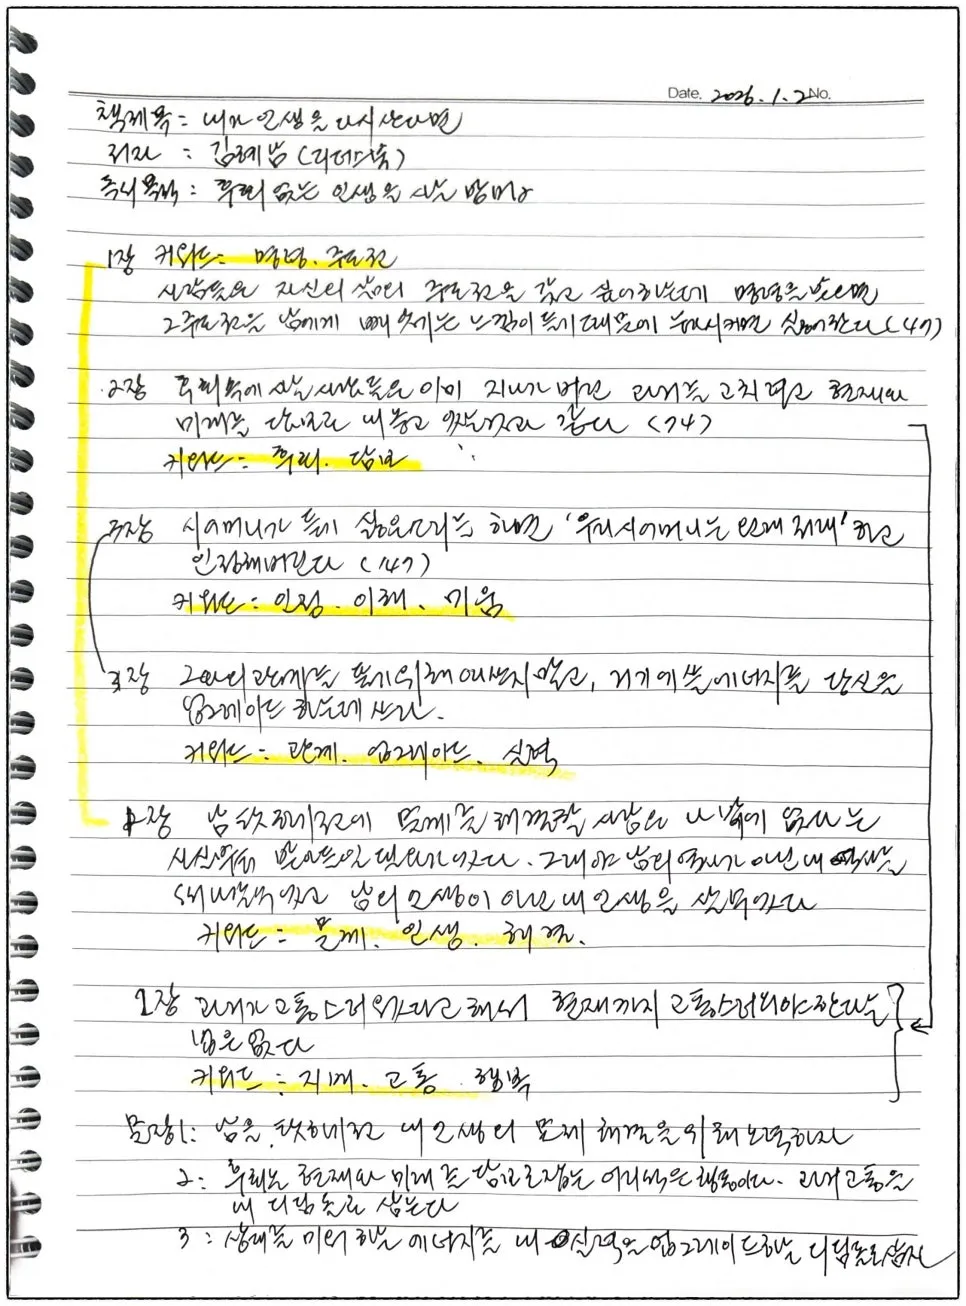 Date. 2026.1.2 No.
책제목 = 내가 인생을 다시 산다면
저자 : 김혜남 (리더스북)
독서목적 : 후회 없는 인생을 사는 방법은
1장 키워드 = 명령. 주도권
사람들은 자신의 삶의 주도권을 갖고 싶어하는데 명령을 받으면
그 주도권을 남에게 빼앗기는 느낌이 들기 때문에 누가 시키면 싫어한다 (47)
2장 후회속에 사는 사람들은 이미 지나가 버린 과거를 고치려고 현재와
미래를 담보로 내놓고 있는 것과 같다 (74)
키워드 = 후회. 담보
3장 시어머니가 듣기 싫은 소리를 하면 '우리 시어머니는 원래 저래' 하고
인정해버린다 (147)
키워드 = 인정. 이해. 미움
3장 그와의 관계를 풀기 위해 애쓰지 말고, 거기에 쓸 에너지를 당신을
업그레이드 하는데 쓰라.
키워드 = 관계. 업그레이드. 실력
1장 남 탓 하기 전에 문제를 해결할 사람은 나 밖에 없다는
사실부터 받아들일 필요가 있다. 그래야 남의 역사가 아닌 내 역사를
써 내려갈 수 있고 남의 인생이 아닌 내 인생을 살 수 있다
키워드 = 문제. 인생. 해결.
1장 과거가 고통스러웠다고 해서 현재까지 고통스러워야 한다는
법은 없다
키워드 : 지배. 고통. 행복
문장1: 남을 탓하기 전 내 인생의 문제 해결을 위해 노력하자
2: 후회는 현재와 미래를 담보로 잡는 어리석은 행동이다. 과거 고통을
내 디딤돌로 삼는다
3: 상대를 미워하는 에너지를 내 실력을 업그레이드하는 디딤돌로 삼자